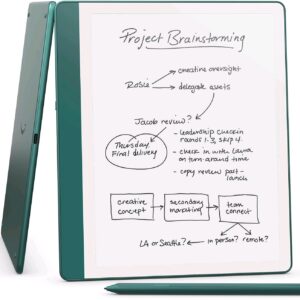 Project Brainstorming
Rosie
creative oversight
delegate assets
Jacob review?
Thursday
Final delivery
- leadership check in
rounds 1-3, skip 4
- check in with Lena
on turn around time
- copy review post-
launch
creative
concept
secondary
marketing
team
connect
LA or Seattle?
in person?
remote?